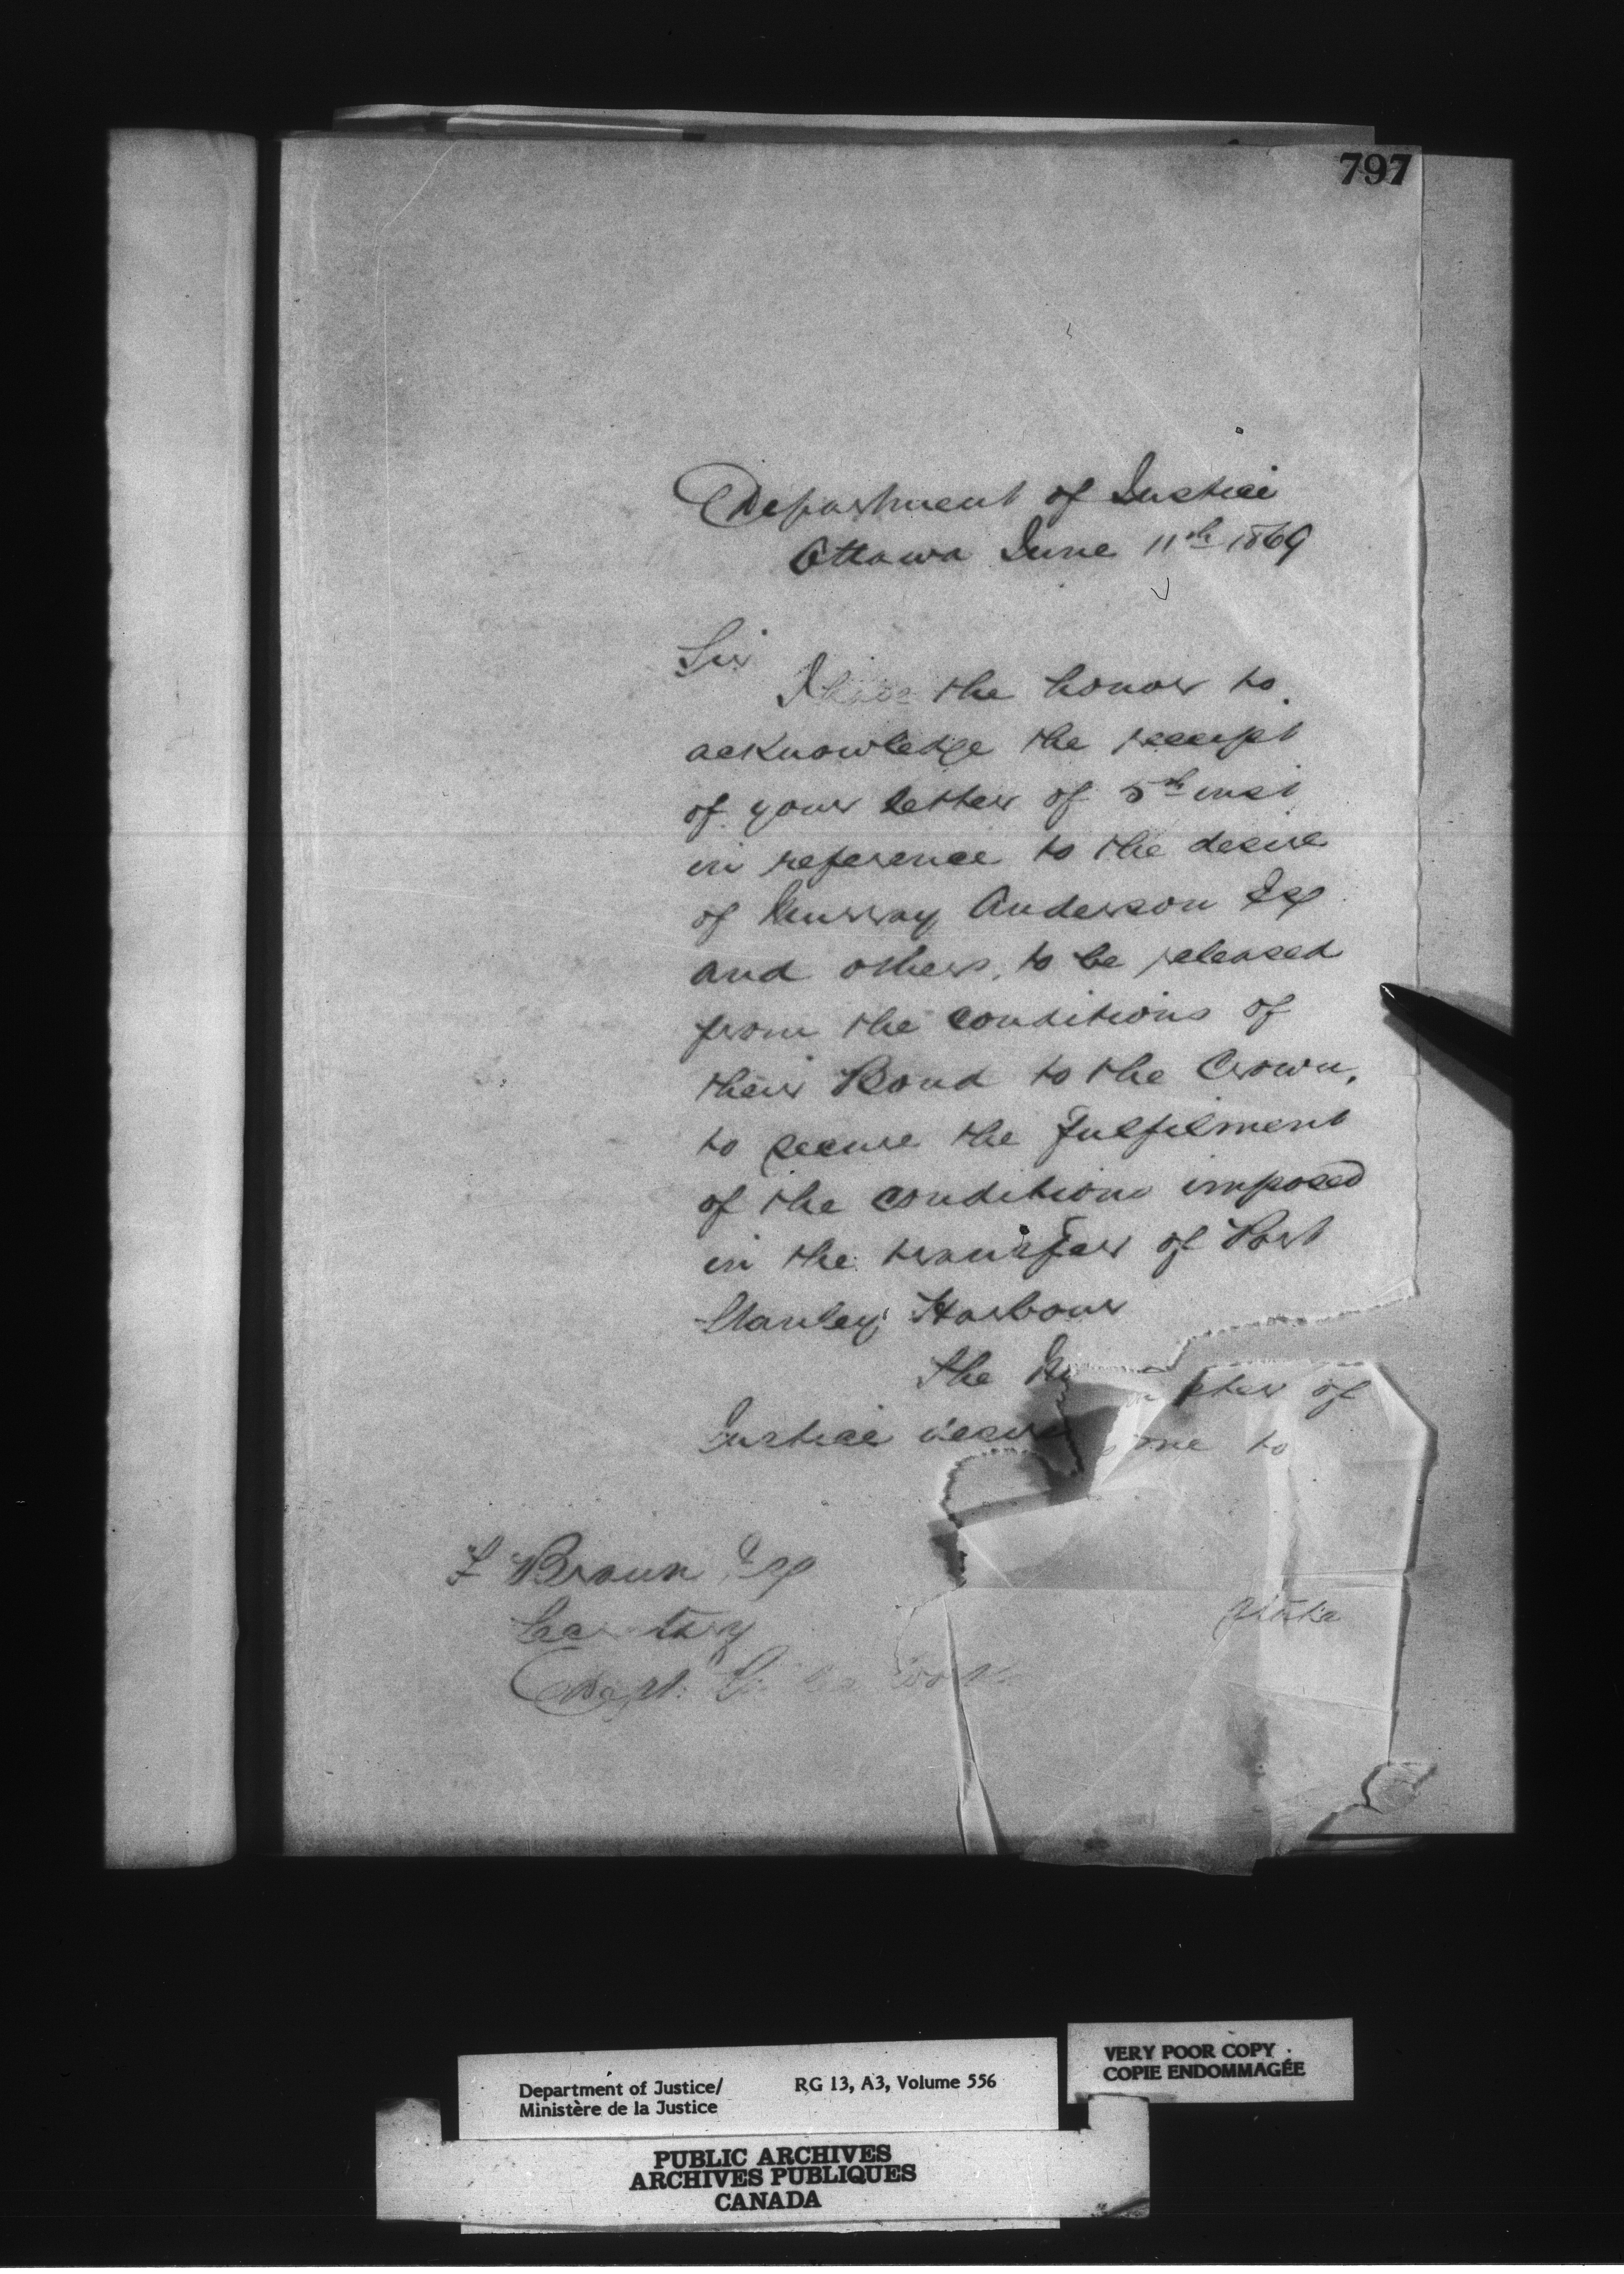 797
Department of Justice
Ottawa June 11th 1869
Sir
I have the honor to
acknowledge the receipt
of your letter of 5th inst
in reference to the desire
of Murray Anderson Esq
and others, to be released
from the conditions of
their Bond to the Crown,
to secure the fulfilment
of the conditions imposed
in the transfer of Port
Stanley Harbour
The Minister of
Justice desires me to
F Braun Esq
Secretary
Dept. Works
Department of Justice/
Ministère de la Justice
RG 13, A3, Volume 556
VERY POOR COPY
COPIE ENDOMMAGÉE
PUBLIC ARCHIVES
ARCHIVES PUBLIQUES
CANADA